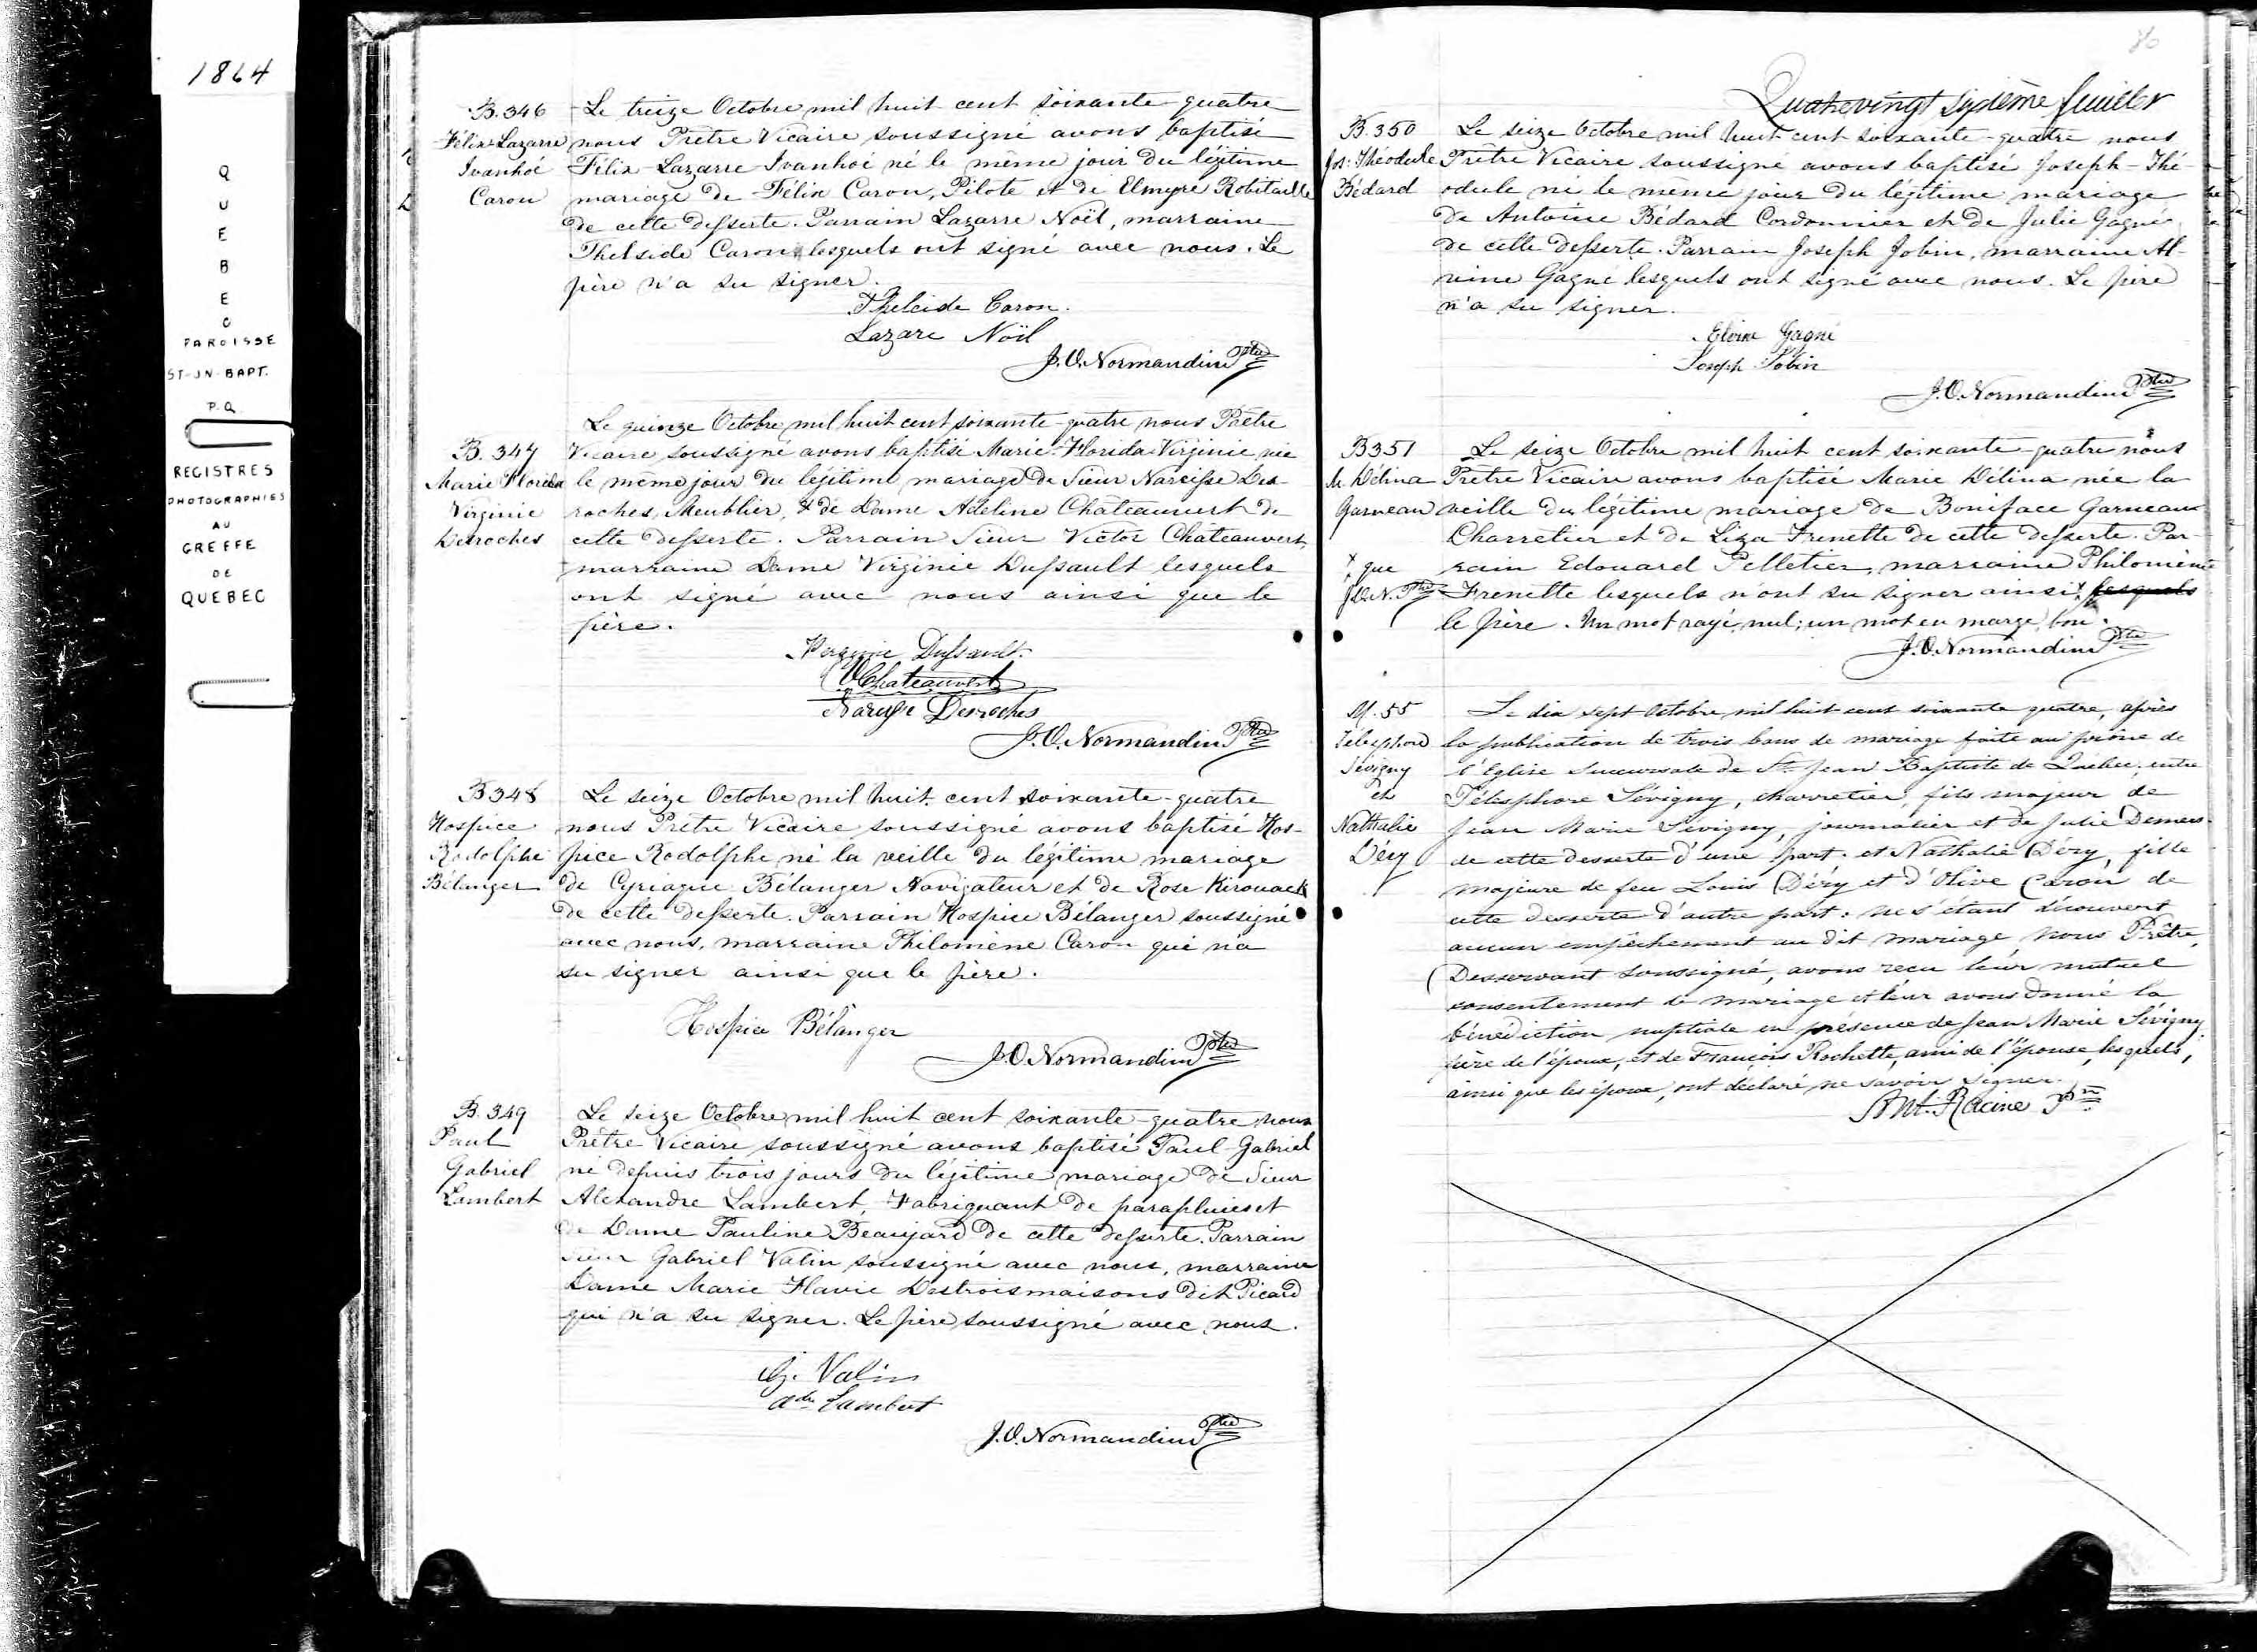 1864
QUEBEC
PAROISSE
ST-JN-BAPT.
P.Q.
REGISTRES
PHOTOGRAPHIES
AU
GREFFE
DE
QUEBEC
B.346
Félix Lazarre
Ivanhoé
Caron
Le treize Octobre mil huit cent soixante-quatre
nous Prêtre Vicaire soussigné avons baptisé
Félix-Lazarre Ivanhoé né le même jour du légitime
mariage de Félix Caron, Pilote et de Elmyre Robitaille
de cette desserte. Parrain Lazarre Noël, marraine
Thelside Caron lesquels ont signé avec nous. Le
père n'a su signer.
Thelcide Caron.
Lazare Noël
J.O. Normandin Ptre
B.347
Marie Florida
Virginie
Desroches
Le quinze Octobre mil huit cent soixante-quatre nous Prêtre
Vicaire soussigné avons baptisé Marie-Florida-Virginie née
le même jour du légitime mariage de Sieur Narcisse Des-
roches, Meublier, & de Dame Adeline Chateauvert de
cette desserte. Parrain Sieur Victor Chateauvert,
marraine Dame Virginie Dussault lesquels
ont signé avec nous ainsi que le
père.
Virginie Dussault.
V Chateauvert
Narcisse Desroches
J.O. Normandin Ptre
B348
Hospice
Rodolphe
Bélanger
Le seize Octobre mil huit cent soixante-quatre
nous Prêtre Vicaire soussigné avons baptisé Hos-
pice Rodolphe né la veille du légitime mariage
de Cyriaque Bélanger Navigateur et de Rose Kirouack
de cette desserte. Parrain Hospice Bélanger soussigné
avec nous, marraine Philomène Caron qui n'a
su signer ainsi que le père.
Hospice Bélanger
J.O. Normandin Ptre
B.349
Paul
Gabriel
Lambert
Le seize Octobre mil huit cent soixante-quatre nous
Prêtre Vicaire soussigné avons baptisé Paul-Gabriel
né depuis trois jours du légitime mariage de Sieur
Alexandre Lambert, Fabriquant de parapluies et
de Dame Pauline Beaujard de cette desserte. Parrain
Sieur Gabriel Valin soussigné avec nous, marraine
Dame Marie Flavie Destroismaisons dit Picard
qui n'a su signer. Le père soussigné avec nous.
G. Valin
Adre Lambert
J.O. Normandin Ptre
86
Quatrevingt sixième feuillet
B.350
Jos: Théodule
Bédard
Le seize Octobre mil huit cent soixante-quatre nous
Prêtre Vicaire soussigné avons baptisé Joseph-Thé-
odule né le même jour du légitime mariage
de Antoine Bédard Cordonnier et de Julie Gagné
de cette desserte. Parrain Joseph Jobin, marraine Al-
vine Gagné lesquels ont signé avec nous. Le père
n'a su signer.
Elvine Gagné
Joseph Jobin
J.O. Normandin Ptre
B351
M. Délina
Garneau
Le seize Octobre mil huit cent soixante-quatre nous
Prêtre Vicaire avons baptisé Marie Délina née la
veille du légitime mariage de Boniface Garneau
Charretier et de Liza Frenette de cette desserte. Par-
rain Edouard Pelletier, marraine Philomène
x que
J.O.N. Ptre
Frenette lesquels n'ont su signer ainsi x lesquels
le père. Un mot rayé, nul; un mot en marge, bon.
J.O. Normandin Ptre
M.55
Télesphore
Sévigny
et
Nathalie
Déry
Le dix sept Octobre mil huit cent soixante quatre, après
la publication de trois bans de mariage faite au prône de
l'Eglise Succursale de St. Jean Baptiste de Québec, entre
Télesphore Sévigny, charretier, fils majeur de
Jean Marie Sévigny, journalier et de Julie Demers
de cette desserte d'une part. et Nathalie Déry, fille
majeure de feu Louis Déry et d'Olive Caron de
cette desserte d'autre part: ne s'étant découvert
aucun empêchement au dit mariage nous Prêtre,
Desservant soussigné, avons reçu leur mutuel
consentement de mariage et leur avons donné la
bénédiction nuptiale en présence de Jean Marie Sévigny
père de l'époux, et de François Rochette, ami de l'épouse, lesquels,
ainsi que les époux, ont déclaré ne savoir signer.
Ant. Racine Ptre